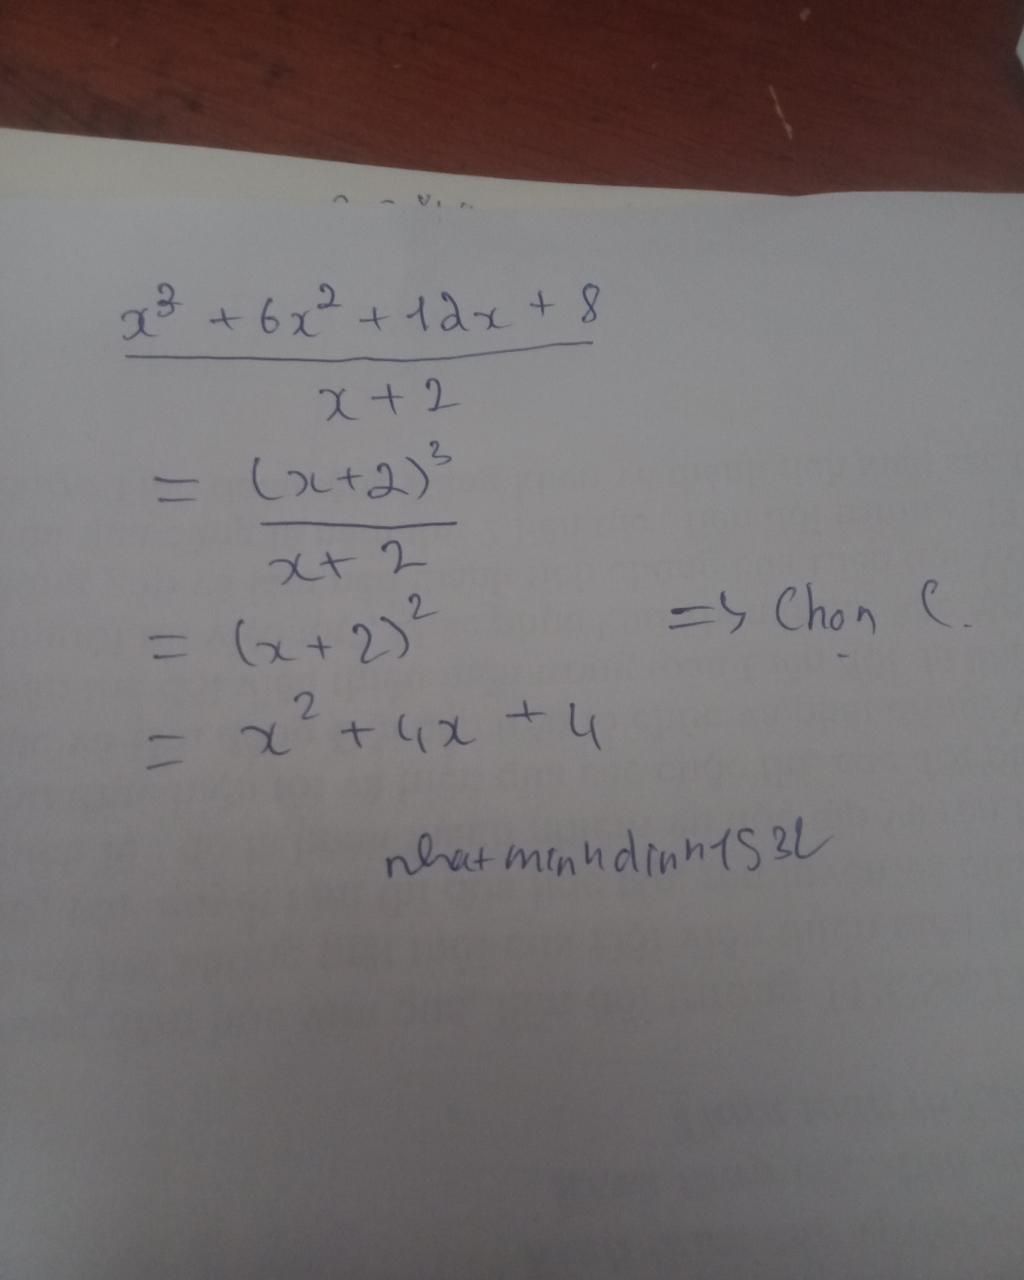 x³ + 6x² + 12x + 8
x + 2
= (x+2)³
x + 2
= (x + 2)²
=> Chọn C.
= x² + 4x + 4
nhatminhdinh1532